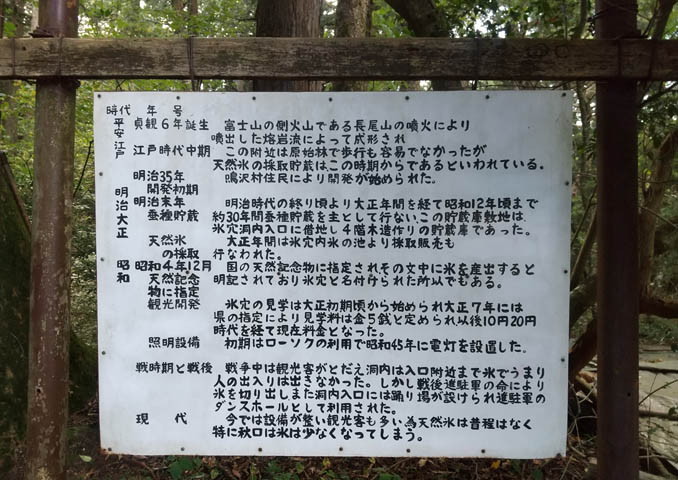 時代 年号
平安 貞観6年誕生 富士山の側火山である長尾山の噴火により
噴出した熔岩流によって成形され
江戸 江戸時代中期 この附近は原始林で歩行も容易でなかったが
天然氷の採取貯蔵はこの時期からであるといわれている。
明治35年 鳴沢村住民により開発が始められた。
開発初期
明治大正 明治末年 明治時代の終り頃より大正年間を経て昭和12年頃まで
蚕種貯蔵 約30年間蚕種貯蔵を主として行ない、この貯蔵庫敷地は
氷穴洞内入口に借地し4階木造作りの貯蔵庫であった。
天然氷 大正年間は氷穴内氷の池より採取販売も
の採取 行なわれた。
昭和 昭和4年12月 国の天然記念物に指定されその文中に氷を産出すると
天然記念 明記されており氷穴と名付けられた所以でもある。
物に指定
観光開発 氷穴の見学は大正初期頃から始められ大正7年には
県の指定により見学料は金5銭と定められ以後10円20円
時代を経て現在料金となった。
照明設備 初期はローソクの利用で昭和45年に電灯を設置した。
戦時期と戦後 戦争中は観光客がとだえ洞内は入口附近まで氷でうまり
人の出入りは出きなかった。しかし戦後進駐軍の命により
氷を切り出しまた洞内入口には踊り場が設けられ進駐軍の
ダンスホールとして利用された。
現代 今では設備が整い観光客も多い為天然氷は昔程はなく
特に秋口は氷は少なくなってしまう。